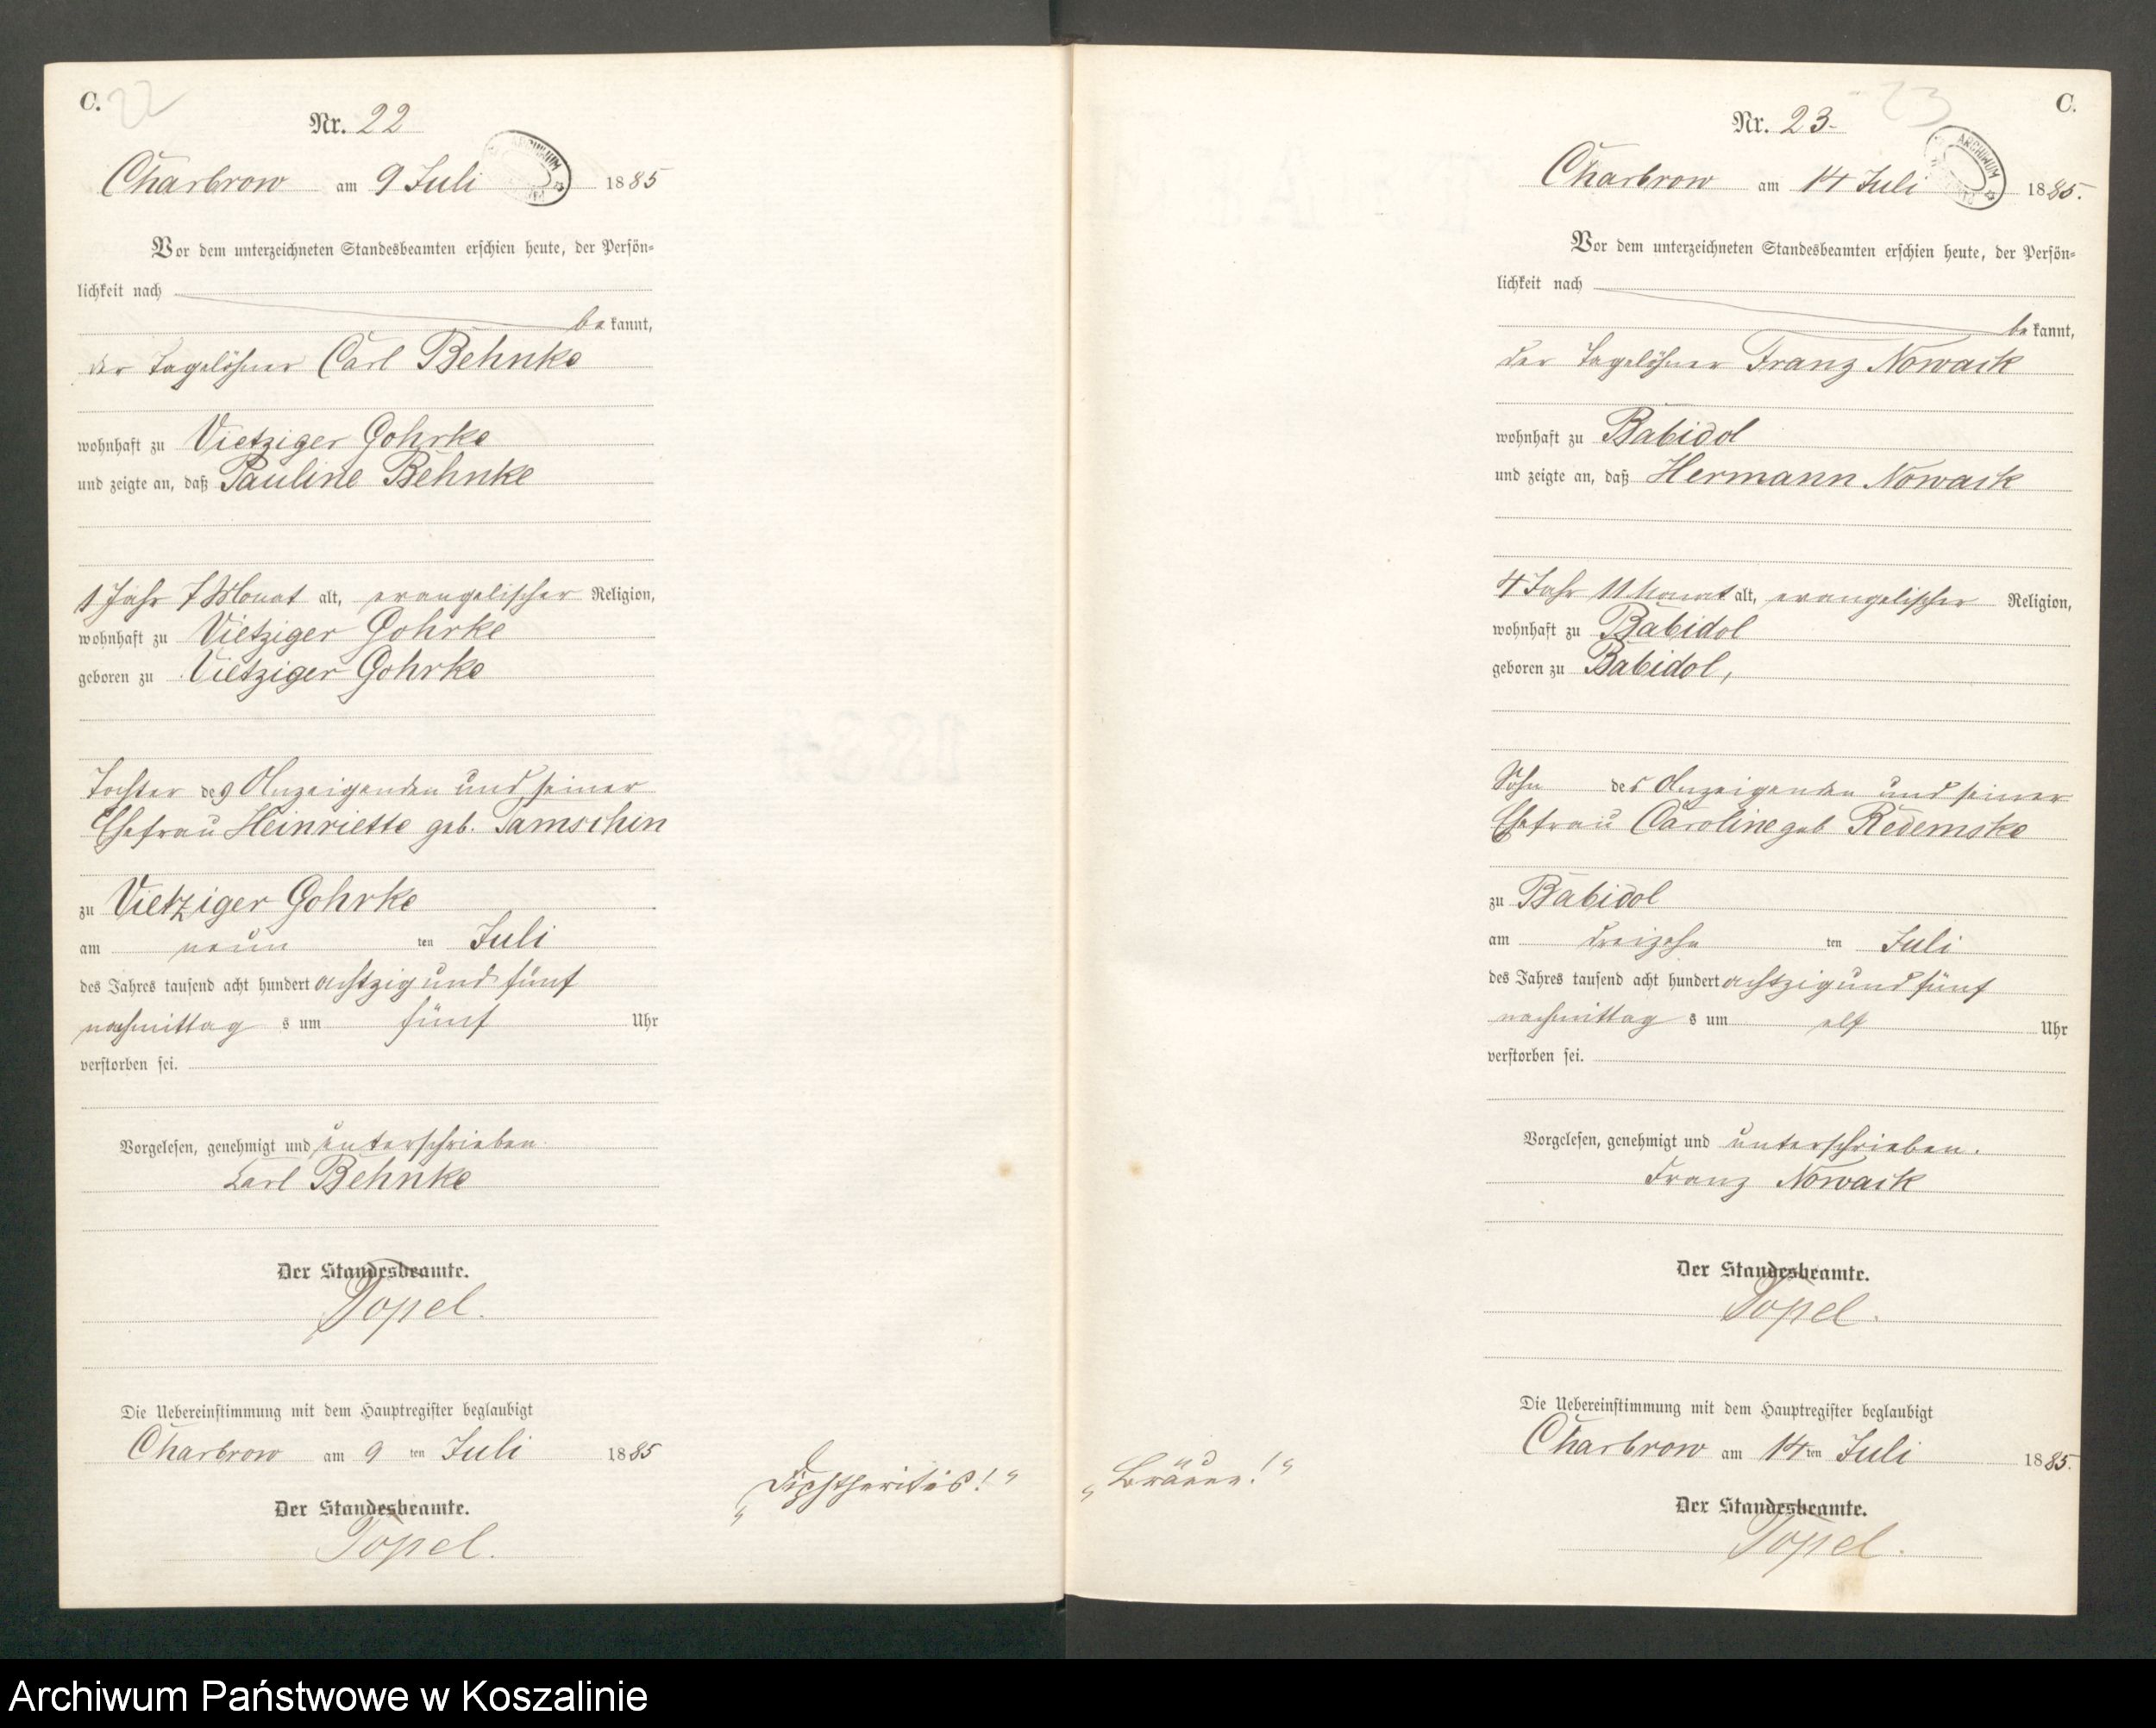 C.
22
Nr. 22
ARCHIWUM
Charbrow am 9 Juli 1885
Vor dem unterzeichneten Standesbeamten erschien heute, der Persön-
lichkeit nach
be kannt,
der Tagelöhner Carl Behnke
wohnhaft zu Vietziger Gohrke
und zeigte an, daß Pauline Behnke
1 Jahr 7 Monat alt, evangelischer Religion,
wohnhaft zu Vietziger Gohrke
geboren zu Vietziger Gohrke
Tochter des Anzeigenden und seiner
Ehefrau Heinriette geb. Tamschin
zu Vietziger Gohrke
am neun ten Juli
des Jahres tausend acht hundert achtzig und fünf
nachmittag s um fünf Uhr
verstorben sei.
Vorgelesen, genehmigt und unterschrieben.
Carl Behnke
Der Standesbeamte.
Topel.
Die Uebereinstimmung mit dem Hauptregister beglaubigt
Charbrow am 9 ten Juli 1885
Der Standesbeamte.
Topel.
„Diphtheritis!"
C.
23
Nr. 23-
ARCHIWUM
Charbrow am 14 Juli 1885.
Vor dem unterzeichneten Standesbeamten erschien heute, der Persön-
lichkeit nach
be kannt,
der Tagelöhner Franz Nowack
wohnhaft zu Babidol
und zeigte an, daß Hermann Nowack
4 Jahr 11 Monat alt, evangelischer Religion,
wohnhaft zu Babidol
geboren zu Babidol,
Sohn des Anzeigenden und seiner
Ehefrau Caroline geb Redemske
zu Babidol
am dreizehn ten Juli
des Jahres tausend acht hundert achtzig und fünf
nachmittag s um elf Uhr
verstorben sei.
Vorgelesen, genehmigt und unterschrieben.
Franz Nowack
Der Standesbeamte.
Topel.
Die Uebereinstimmung mit dem Hauptregister beglaubigt
Charbrow am 14 ten Juli 1885.
Der Standesbeamte.
Topel.
„Bräune!"
Archiwum Państwowe w Koszalinie